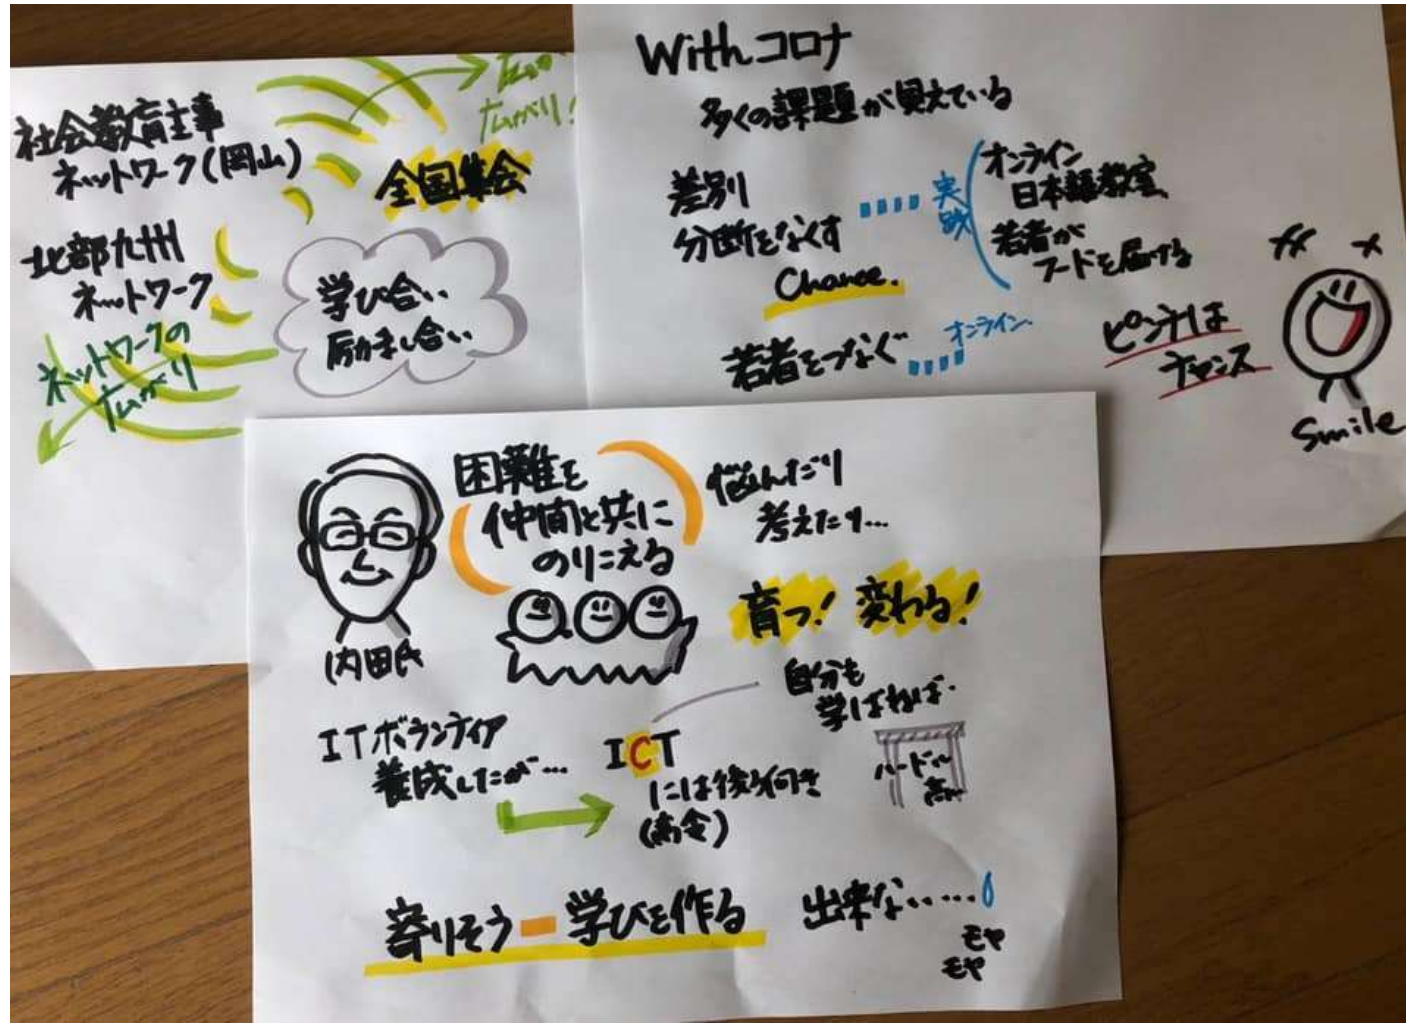 社会教育主事
ネットワーク(岡山)
北部九州
ネットワーク
ネットワークの
広がり
広がり!
全国集会
学び合い
励まし合い
Withコロナ
多くの課題が見えている
差別
分断をなくす
Chance.
実践
オンライン
日本語教室
若者が
フードを届ける
若者をつなぐ
オンライン.
ピンチは
チャンス
Smile
内田氏
困難を
仲間と共に
のりこえる
悩んだり
考えたり…
育つ! 変わる!
自分も
学ばねば.
ITボランティア
養成したが…
ICT
には後ろ向き
(高令)
ハードル
高
寄りそう ー 学びを作る
出来ない……
モヤ
モヤ